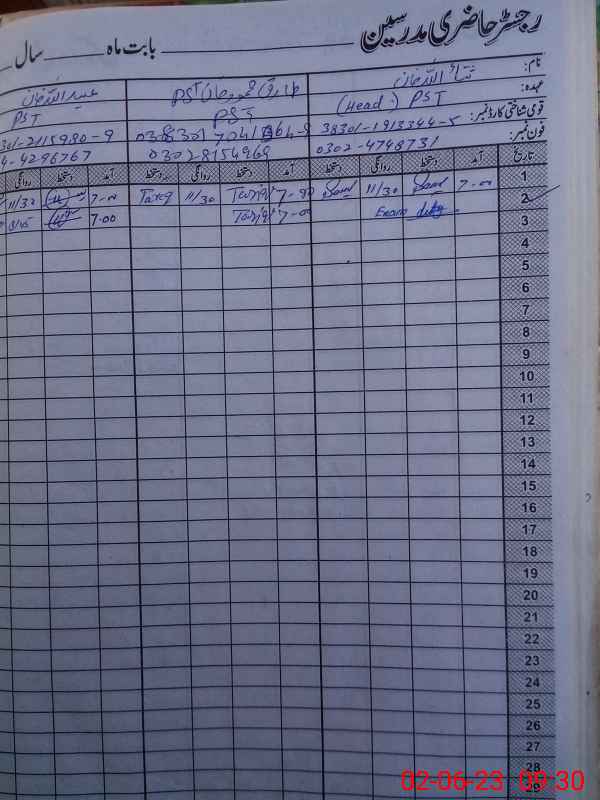 رجسٹر حاضری مدرسین
بابت ماہ سال
نام: ثناء اللہ خان طارق محمود خان PST عبید اللہ خان
عہدہ: (Head) PST PST PST
قومی شناختی کارڈ نمبر: 38301-1913344-5
فون نمبر: 0302-4748731 0302-8154969 4-4296767
تاریخ آمد دستخط روانگی دستخط آمد دستخط روانگی دستخط آمد دستخط روانگی
1 7-00 11/30 7-00 Tariq 11/30 Tariq 7-00 11/30
2 Exam duty Tariq 7-00 7-00
3
4
5
6
7
8
9
10
11
12
13
14
15
16
17
18
19
20
21
22
23
24
25
26
27
28
29
02-06-23 09:30